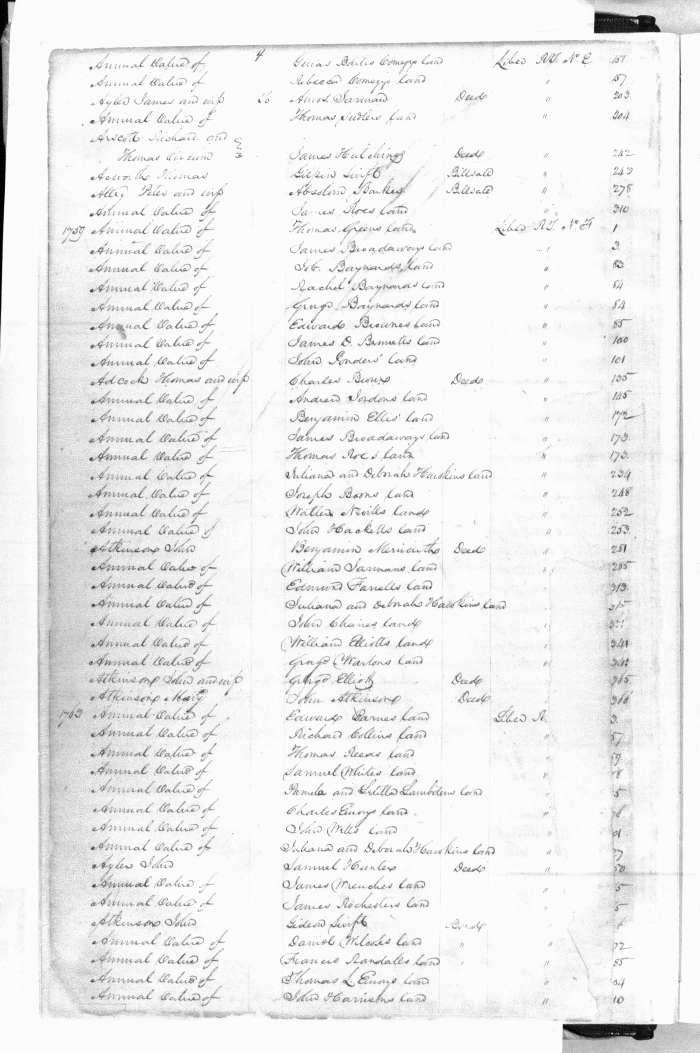 4
Annual Value of Comegys land Liber RT No E 157
Annual Value of Rebecca Comegys land " 157
Ayler James and wife To Amos Jarman Deed " 203
Annual Value of Thomas land " 204
Richard and
Thomas James Hutchings Deed " 242
Acworth Thomas Gideon Swift Billsale " 243
Peter and wife Absolom Billsale " 278
Annual Value of James Roes land " 310
1759 Annual Value of Thomas Greens land Liber RT. No F 1
Annual Value of James Broadaways land " 3
Annual Value of Job. Baynards land " 83
Annual Value of Rachel Baynards land " 84
Annual Value of George Baynards land " 84
Annual Value of Edward Brownes land " 85
Annual Value of James D. Bennetts land " 100
Annual Value of John Ponders' land " 101
Adcock Thomas and wife Charles Brown Deed " 135
Annual Value of Andrew Jordons land " 145
Annual Value of Benjamin Ellis' land " 172
Annual Value of James Broadaways land " 173
Annual Value of Thomas Roe's land " 173
Annual Value of Juliana and Deborah Hawkins land " 234
Annual Value of Joseph Boons land " 248
Annual Value of Walter Nevills land " 252
Annual Value of John Hacketts land " 253
Atkinson John Benjamin Deed " 281
Annual Value of William Jarmans land " 285
Annual Value of Edmund Farrells land " 313
Annual Value of Juliana and Deborah Hawkins land " 315
Annual Value of John Chaires land "
Annual Value of William Elliotts land " 341
Annual Value of George Wartons land " 341
Atkinson John and wife George Elliott Deed " 365
Atkinson Mary John Atkinson Deed " 366
1763 Annual Value of Edward Barnes land Liber R 3
Annual Value of Richard Collins land " 57
Annual Value of Thomas Reeds land "
Annual Value of Samuel Whites land "
Annual Value of Pamela and land "
Annual Value of Charles Emorys land "
Annual Value of John Wells land "
Annual Value of Juliana and Deborah Hawkins land "
Ayler John Samuel Hunter Deed "
Annual Value of James Wrenches land "
Annual Value of James Rochesters land "
Atkinson John Gideon Swift Bond "
Annual Value of Daniel Wilcocks land " 72
Annual Value of Francis Randales land " 85
Annual Value of Thomas L Emorys land "
Annual Value of John Harrisons land " 10